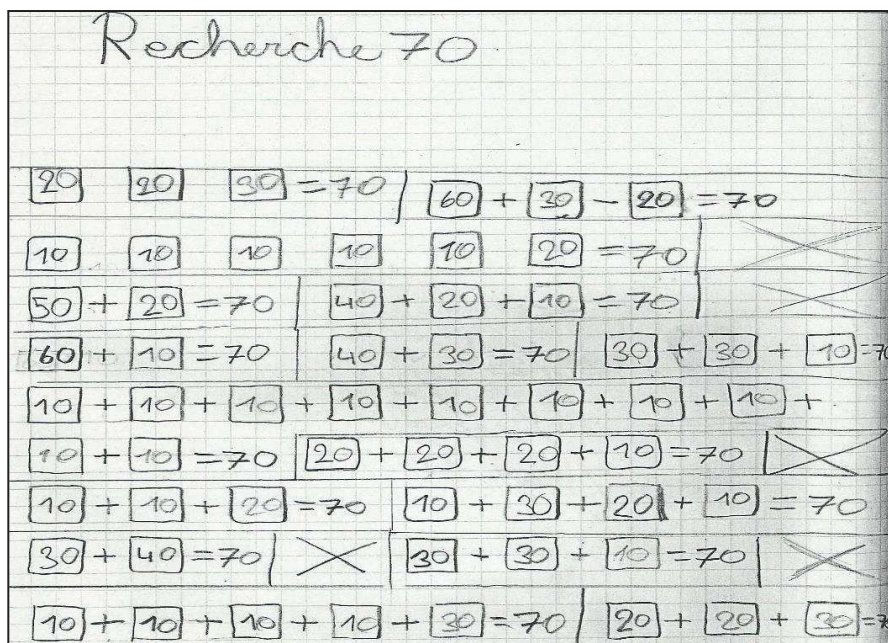 Recherche 70
20 20 30 = 70 | 60 + 30 - 20 = 70
10 10 10 10 10 20 = 70
50 + 20 = 70 | 40 + 20 + 10 = 70
60 + 10 = 70 | 40 + 30 = 70 | 30 + 30 + 10 = 70
10 + 10 + 10 + 10 + 10 + 10 + 10 + 10 +
10 + 10 = 70 | 20 + 20 + 20 + 10 = 70
10 + 10 + 20 = 70 | 10 + 30 + 20 + 10 = 70
30 + 40 = 70 | 30 + 30 + 10 = 70
10 + 10 + 10 + 10 + 30 = 70 | 20 + 20 + 30 = 7